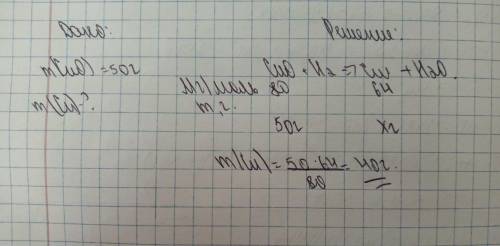 Дано: Решение:
m(CuO)=50г CuO + H2 => Cu + H2O.
m(Cu)-? Mг/моль 80 64
m, г. 50г xг
m(Cu) = 50·64/80 = 40г.